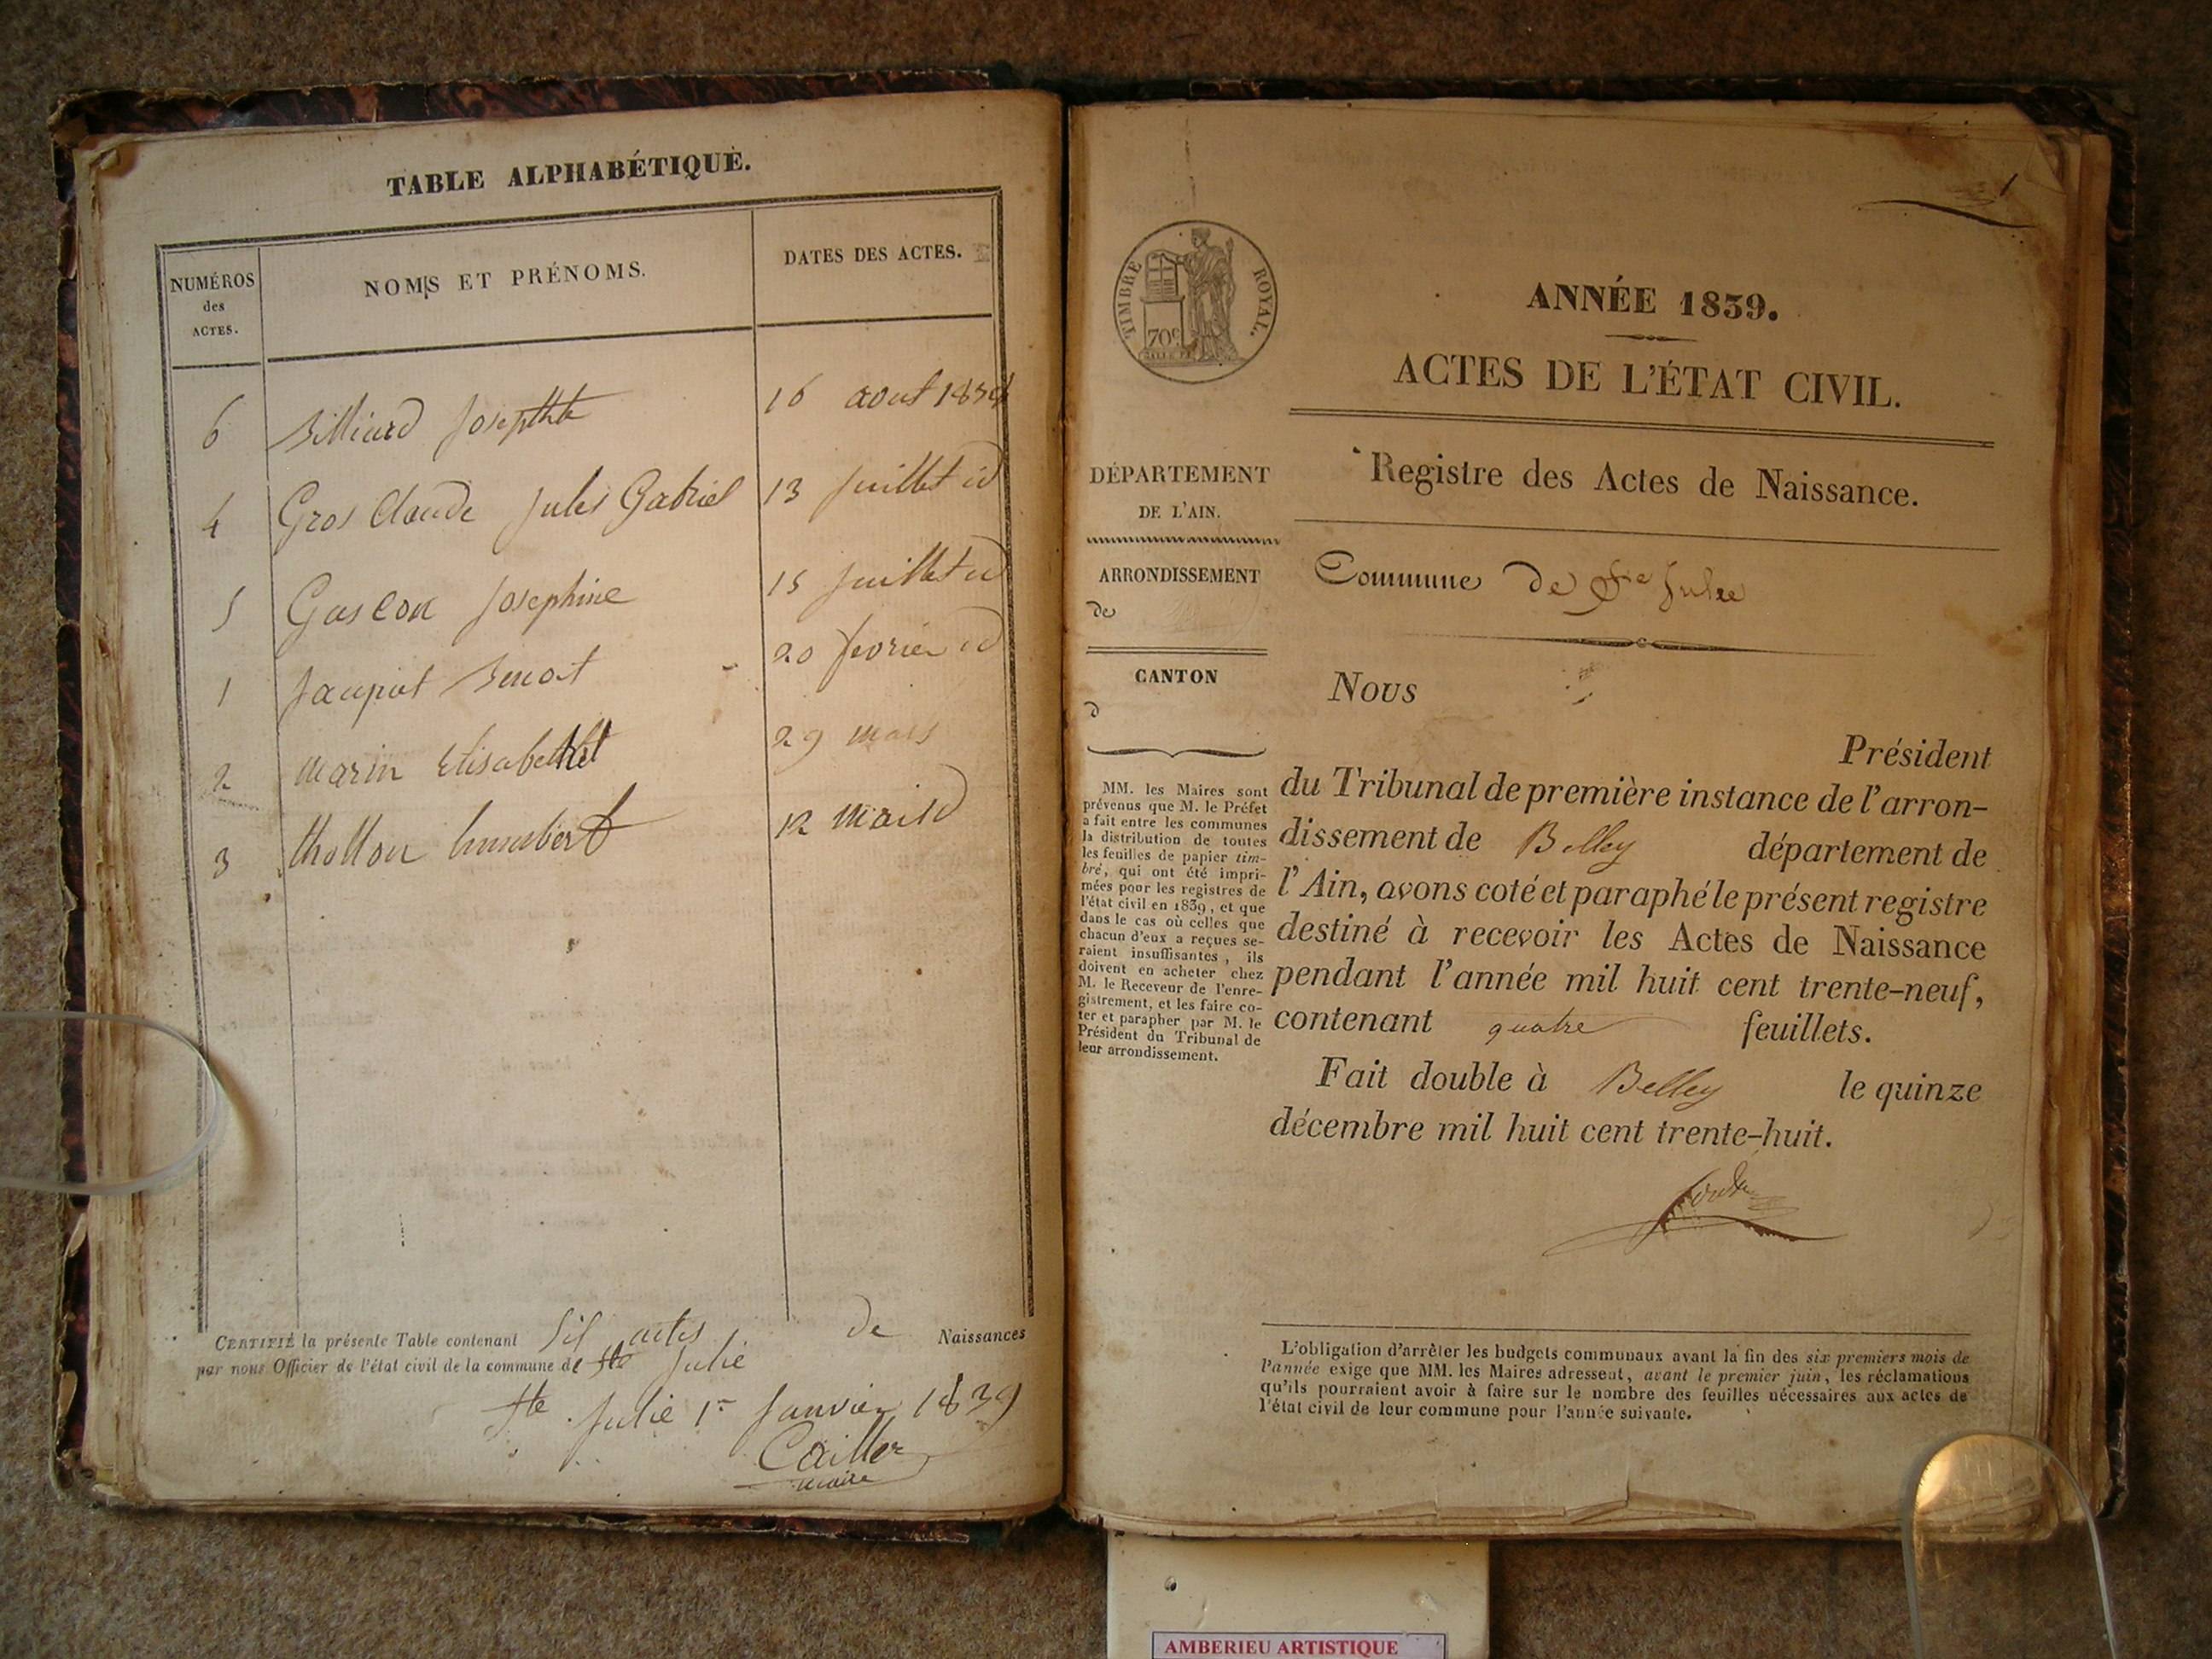 TABLE ALPHABÉTIQUE.
NUMÉROS
des
ACTES.
NOMS ET PRÉNOMS.
DATES DES ACTES.
6 Billiard Josephte 16 aout 1838
4 Gros Claude Jules Gabriel 13 Juillet id
5 Gascon Josephine 15 Juillet id
1 Jacquot Benoit 20 fevrier id
2 Marin Elisabeth 29 mars
3 thollon humbert 12 Mai id
CERTIFIÉ la présente Table contenant Six actes de Naissances
par nous Officier de l'état civil de la commune de Ste Julie
Ste Julie 1er Janvier 1839
Cailler
maire
1
TIMBRE ROYAL.
70c
ANNÉE 1839.
ACTES DE L'ÉTAT CIVIL.
Registre des Actes de Naissance.
Commune de Ste Julie
DÉPARTEMENT
DE L'AIN.
ARRONDISSEMENT
de
CANTON
d
MM. les Maires sont
prévenus que M. le Préfet
a fait entre les communes
la distribution de toutes
les feuilles de papier tim-
bré, qui ont été impri-
mées pour les registres de
l'état civil en 1839, et que
dans le cas où celles que
chacun d'eux a reçues se-
raient insuffisantes, ils
doivent en acheter chez
M. le Receveur de l'enre-
gistrement, et les faire co-
ter et parapher par M. le
Président du Tribunal de
leur arrondissement.
Nous
Président
du Tribunal de première instance de l'arron-
dissement de Belley département de
l'Ain, avons coté et paraphé le présent registre
destiné à recevoir les Actes de Naissance
pendant l'année mil huit cent trente-neuf,
contenant quatre feuillets.
Fait double à Belley le quinze
décembre mil huit cent trente-huit.
L'obligation d'arrêter les budgets communaux avant la fin des six premiers mois de
l'année exige que MM. les Maires adressent, avant le premier juin, les réclamations
qu'ils pourraient avoir à faire sur le nombre des feuilles nécessaires aux actes de
l'état civil de leur commune pour l'année suivante.
AMBERIEU ARTISTIQUE